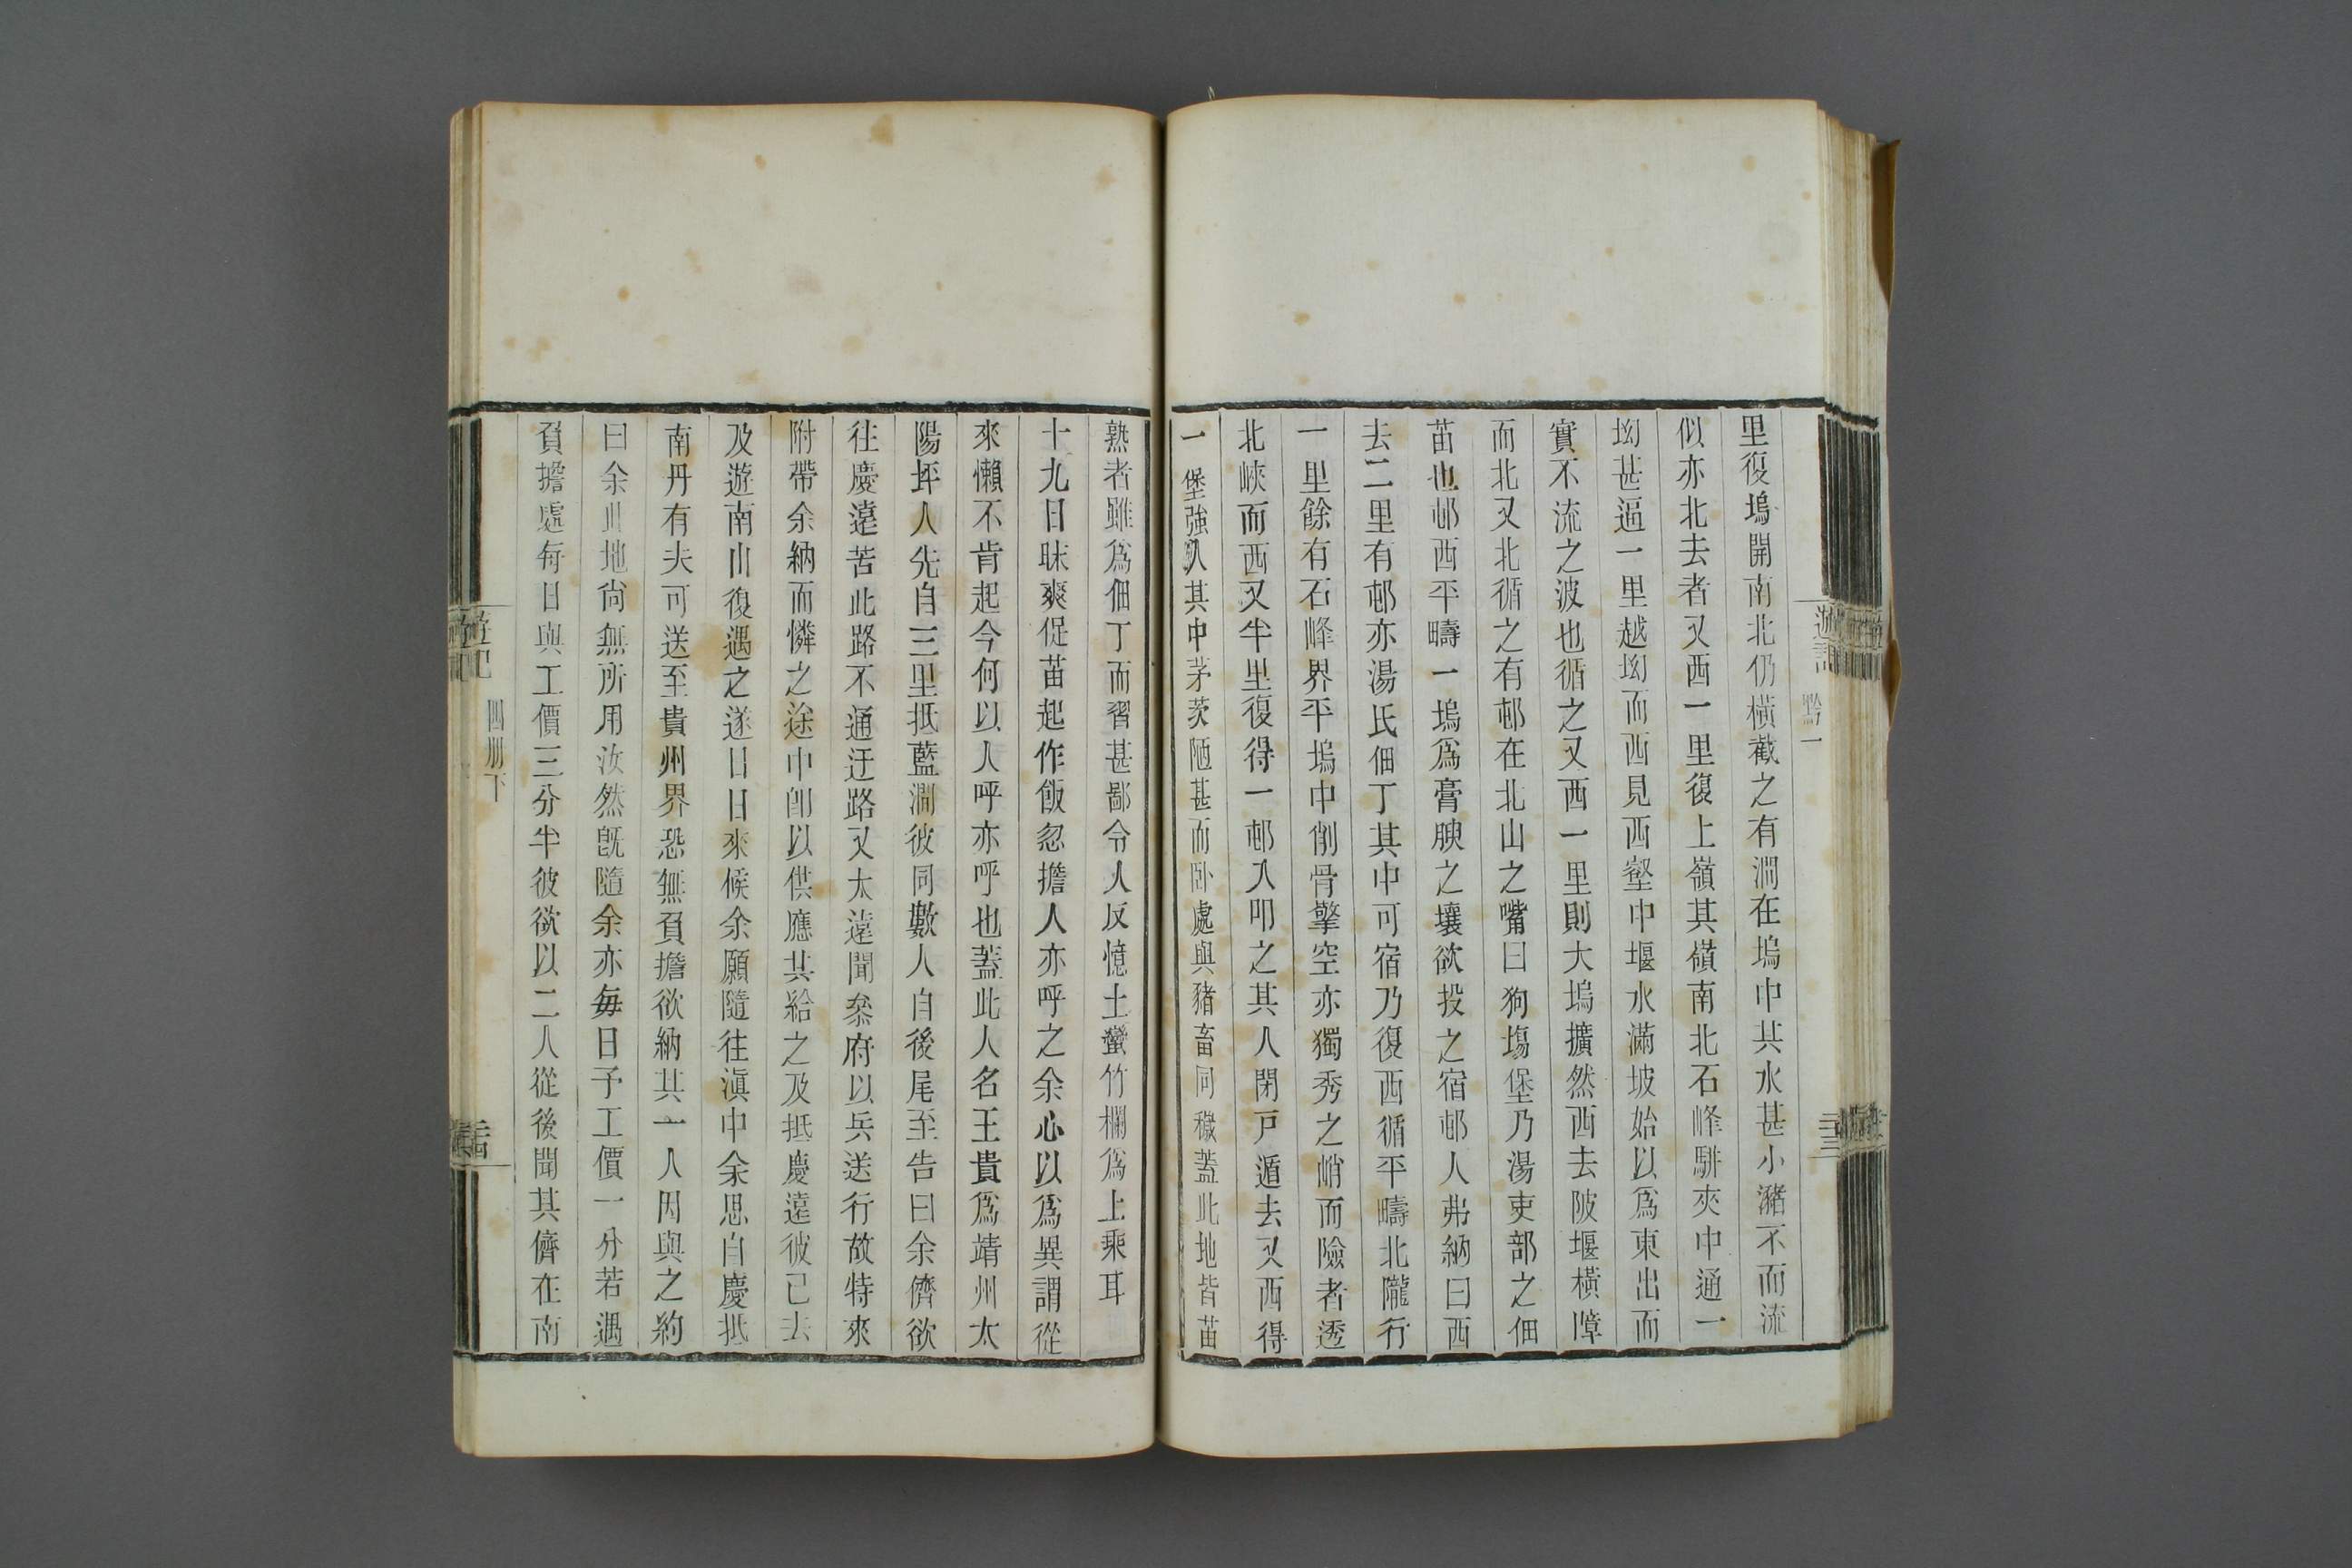 里復塢開南北仍橫截之有澗在塢中其水甚小瀦不而流
似亦北去者又西一里復上嶺其嶺南北石峰駢夾中通一
坳甚逼一里越坳而西見西壑中堰水滿坡始以爲東出而
實不流之波也循之又西一里則大塢擴然西去陂堰橫障
而北又北循之有邨在北山之嘴曰狗塲堡乃湯吏部之佃
苗也邨西平疇一塢爲膏腴之壤欲投之宿邨人弗納曰西
去二里有邨亦湯氏佃丁其中可宿乃復西循平疇北隴行
一里餘有石峰界平塢中削骨擎空亦獨秀之峭而險者透
北峽而西又半里復得一邨入叩之其人閉戸遁去又西得
一堡強入其中茅茨陋甚而卧處與豬畜同穢蓋此地皆苗
熟者雖爲佃丁而習甚鄙令人反憶土蠻竹欄爲上乘耳
十九日昧爽促苗起作飯忽擔人亦呼之余心以爲異謂從
來懶不肯起今何以人呼亦呼也蓋此人名王貴爲靖州太
陽坪人先自三里抵藍澗彼同數人自後尾至告曰余儕欲
往慶遠苦此路不通迂路又太遠聞叅府以兵送行故特來
附帶余納而憐之途中卽以供應其給之及抵慶遠彼已去
及遊南山復遇之遂日日來候余願隨往滇中余思自慶抵
南丹有夫可送至貴州界恐無負擔欲納其一人因與之約
曰余此地尙無所用汝然旣隨余亦每日予工價一分若遇
負擔處每日與工價三分半彼欲以二人從後聞其儕在南
遊記
黔一
二十三
遊記
四册下
二十四